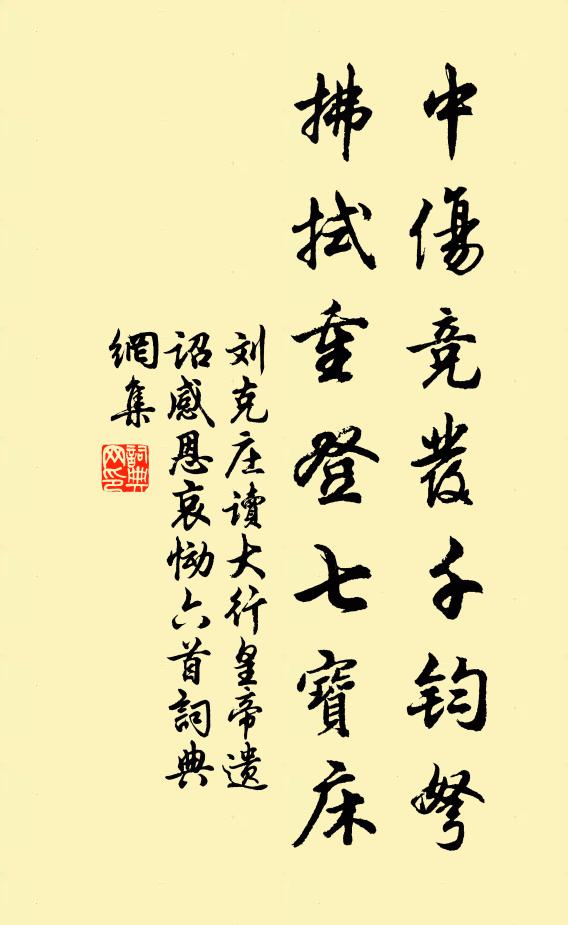 中傷竞發千钧弩
拂拭重登七寶床
刘克庄讀大行皇帝遗
诏感恩哀恸六首詞典
網集
詞典
网印